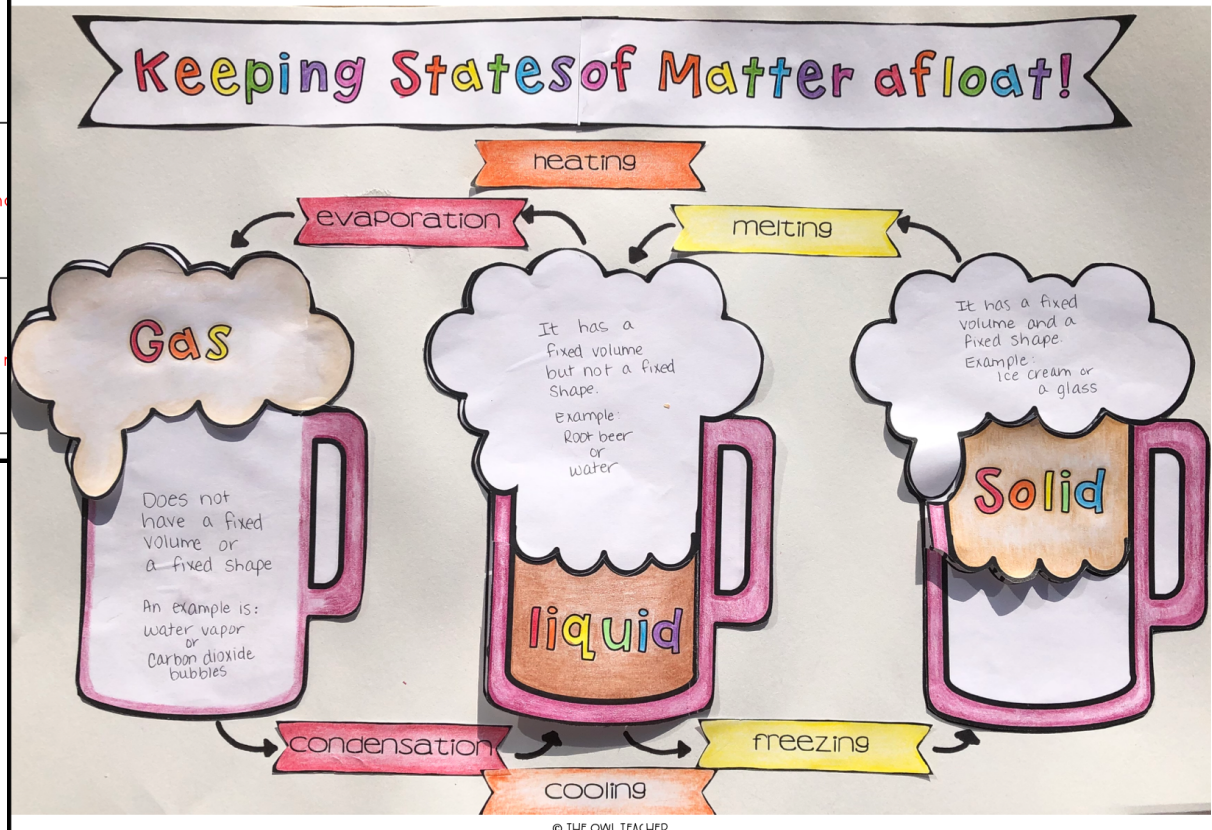 Keeping States of Matter afloat!
heating
evaporation
melting
Gas
Does not
have a fixed
volume or
a fixed shape
An example is:
water vapor
or
Carbon dioxide
bubbles
It has a
fixed volume
but not a fixed
shape.
Example:
Root beer
or
water
liquid
It has a fixed
volume and a
fixed shape.
Example:
Ice cream or
a glass
Solid
condensation
freezing
cooling
© THE OWL TEACHER